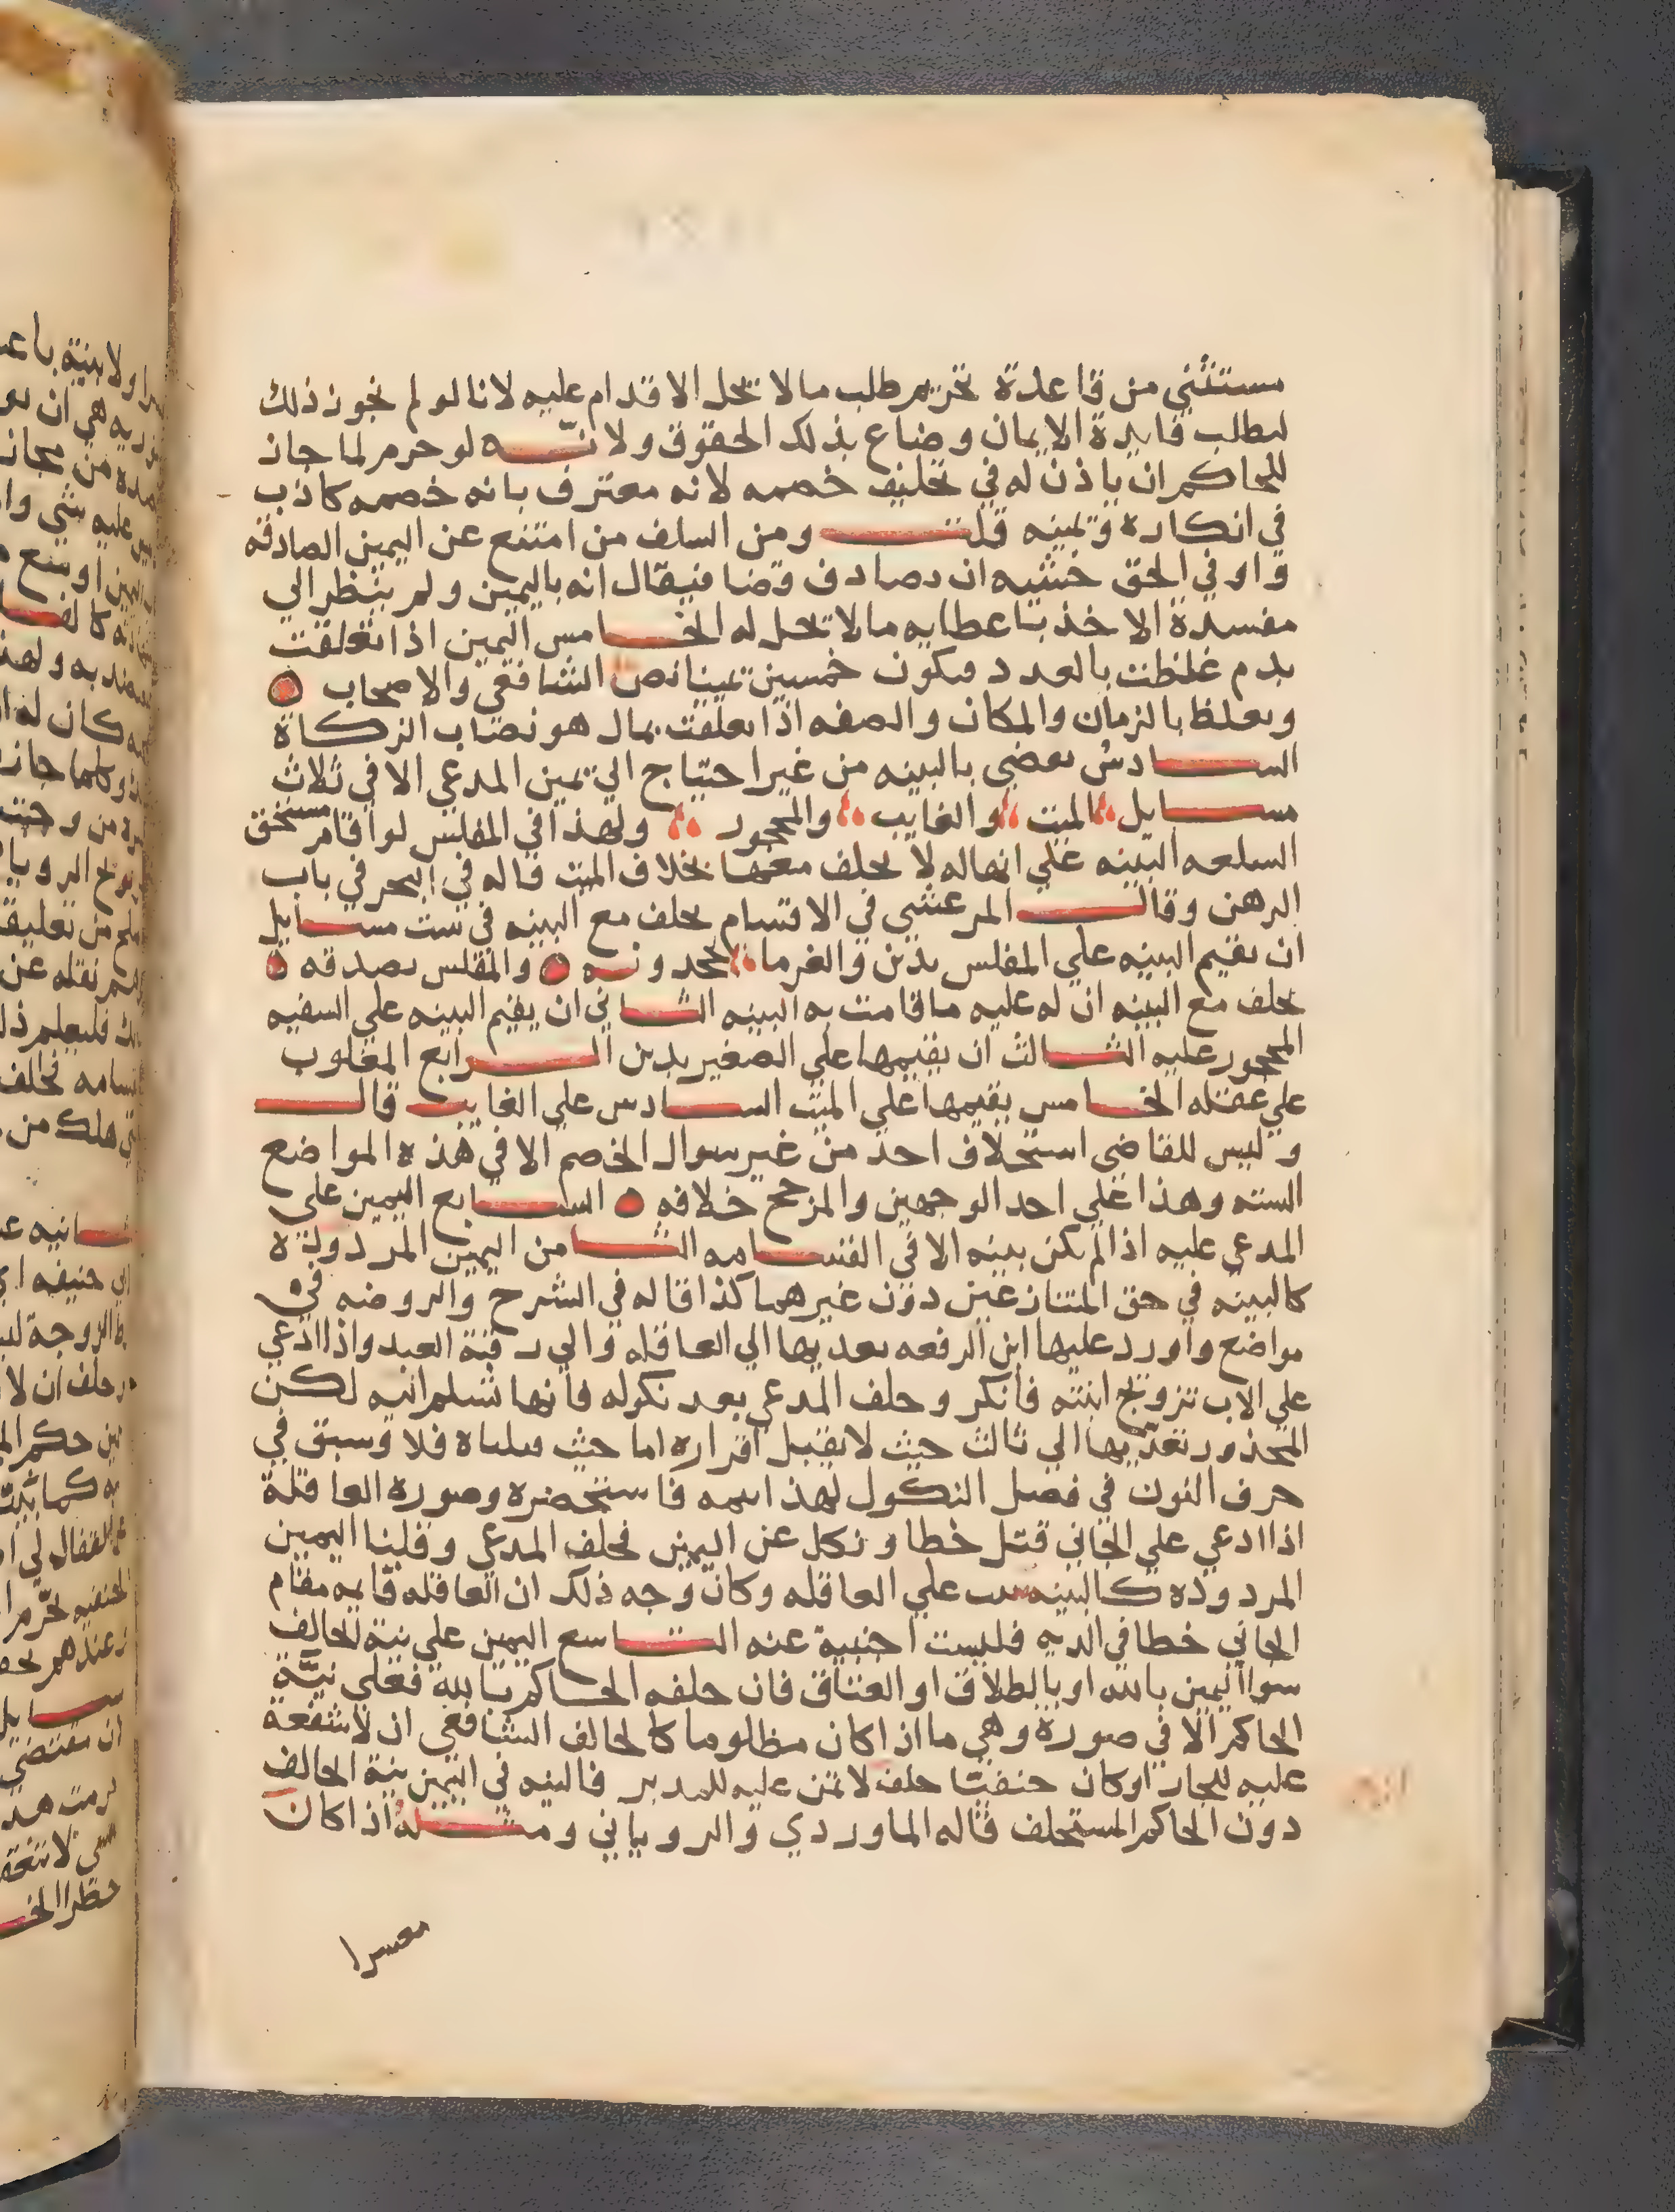 مستثنى من قاعدة تحريم طلب مالا يحل الاقدام عليه لانا لو لم نجوز ذلك
لبطلب فايدة الايمان وضاع بذلك الحقوق ولانه لو حرم لما جاز
للحاكم ان ياذن له في تحليف خصمه لانه معترف بانه خصمه كاذب
في انكاره ويمينه قلت ومن السلف من امتنع عن اليمين الصادقه
واوفي الحق خشيه ان يصادف قضا فيقال انه باليمين ولم ينظر الي
مفسدة الاخذ باعطايه مالا يحل له الخامس اليمين اذا تعلقت
بدم غلظت بالعدد فيكون خمسين يمينا نص الشافعي والاصحاب
وتغلظ بالزمان والمكان والصفه اذا تعلقت بمال هو نصاب الزكاة
السادس يقضي بالبينه من غير احتياج الي يمين المدعي الا في ثلاث
مسايل الميت والغايب والمحجور ولهذا في المفلس لو اقام مستحق
السلعه البينه علي انها له لا يحلف معها بخلاف الميت قاله في البحر في باب
الرهن وقال المرعشي في الاقسام يحلف مع البينه في ست مسايل
ان يقيم البينه علي المفلس بدين والغرما يجحدونه والمفلس يصدقه
يحلف مع البينه ان له عليه ما قامت به البينه الثاني ان يقيم البينه علي السفيه
المحجور عليه الثالث ان يقيمها علي الصغير بدين الرابع المغلوب
علي عقله الخامس يقيمها علي الميت السادس علي الغايب قال
وليس للقاضي استحلاف احد من غير سوال الخصم الا في هذه المواضع
السته وهذا علي احد الوجهين والمرجح خلافه السابع اليمين علي
المدعي عليه اذا لم يكن بينه الا في القسامه الثامن اليمين المردودة
كالبينه في حق المتنازعين دون غيرهما كذا قاله في الشرح والروضه في
مواضع واورد عليها ابن الرفعه تعديها الي العاقله والي رقبة العبد واذا ادعي
علي الاب تزويج ابنته فانكر وحلف المدعي بعد نكوله فانها تسلم اليه لكن
المحذور تعديها الي ثالث حيث لا يقبل اقراره اما حيث قبلناه فلا وسبق في
حرف النون في فصل النكول لهذا تتمه فاستحضره وصورة العاقلة
اذا ادعي علي الجاني قتل خطا ونكل عن اليمين فحلف المدعي وقلنا اليمين
المردوده كالبينه علي العاقله وكان وجه ذلك ان العاقله قايمه مقام
الجاني خطا في الديه فليست اجنبية عنه التاسع اليمين علي نية الحالف
سوا اليمين بالله او بالطلاق او العتاق فان حلفه الحاكم بالله فعلي نيّة
الحاكم الا في صورة وهي ما اذا كان مظلوما كالحالف الشافعي ان لا شفعة
عليه للجار او كان حنفيّا حلف لا يمن عليه للمدبر فالنيه في اليمين نية الحالف
دون الحاكم المستحلف قاله الماوردي والروياني ومثله اذا كان
معسرا